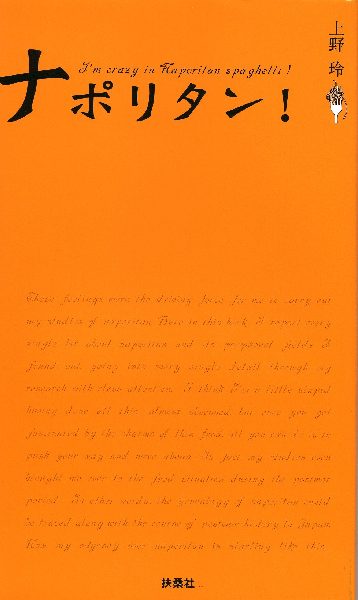 上野 玲
I'm crazy in Naporitan spaghetti!
ナポリタン!
These feelings were the driving force for me to carry out
my studies of naporitan. Here in this book, I report every
single bit about naporitan and its peripheral fields I
found out, going into every single detail through my
research with close attention. I think I'm a little
having done all this almost obsessed, but once you get
fascinated by the charms of this food, all you can do is to
push your way and move ahead. In fact my studies even
brought me over to the food situation during the postwar
period. In other words, the genealogy of naporitan could
be traced along with the course of postwar history in Japan.
Now my odyssey over naporitan is starting like this.
扶桑社